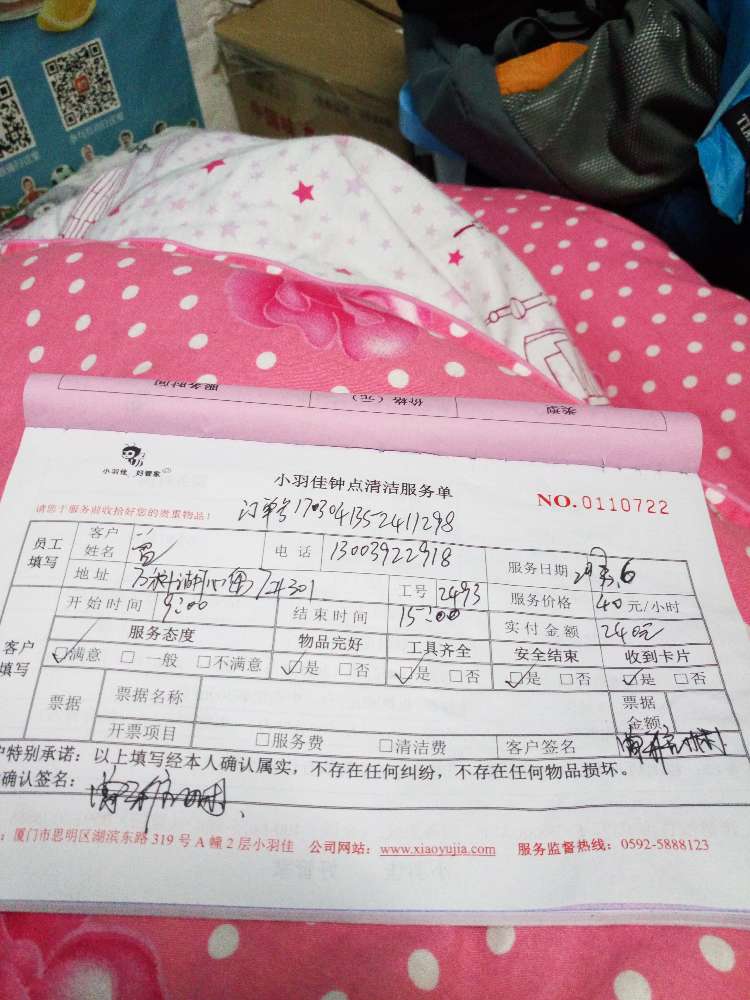 类型 价格（元） 服务时间
小羽佳 好管家
小羽佳钟点清洁服务单
NO.0110722
请您于服务前收拾好您的贵重物品！
订单号1703041352411298
员工填写 客户姓名 电话 13003922918 服务日期
地址 工号 2493 服务价格 40 元/小时
客户填写 开始时间 9:00 结束时间 15:00 实付金额 240元
服务态度 物品完好 工具齐全 安全结束 收到卡片
☑满意 □ 一般 □不满意 ☑是 □否 ☑是 □否 ☑是 □否 ☑是 □否
票据 票据名称 票据金额
开票项目 □服务费 □清洁费 客户签名
户特别承诺：以上填写经本人确认属实，不存在任何纠纷，不存在任何物品损坏。
确认签名：
：厦门市思明区湖滨东路 319 号 A 幢 2 层小羽佳 公司网站：www.xiaoyujia.com 服务监督热线：0592-5888123